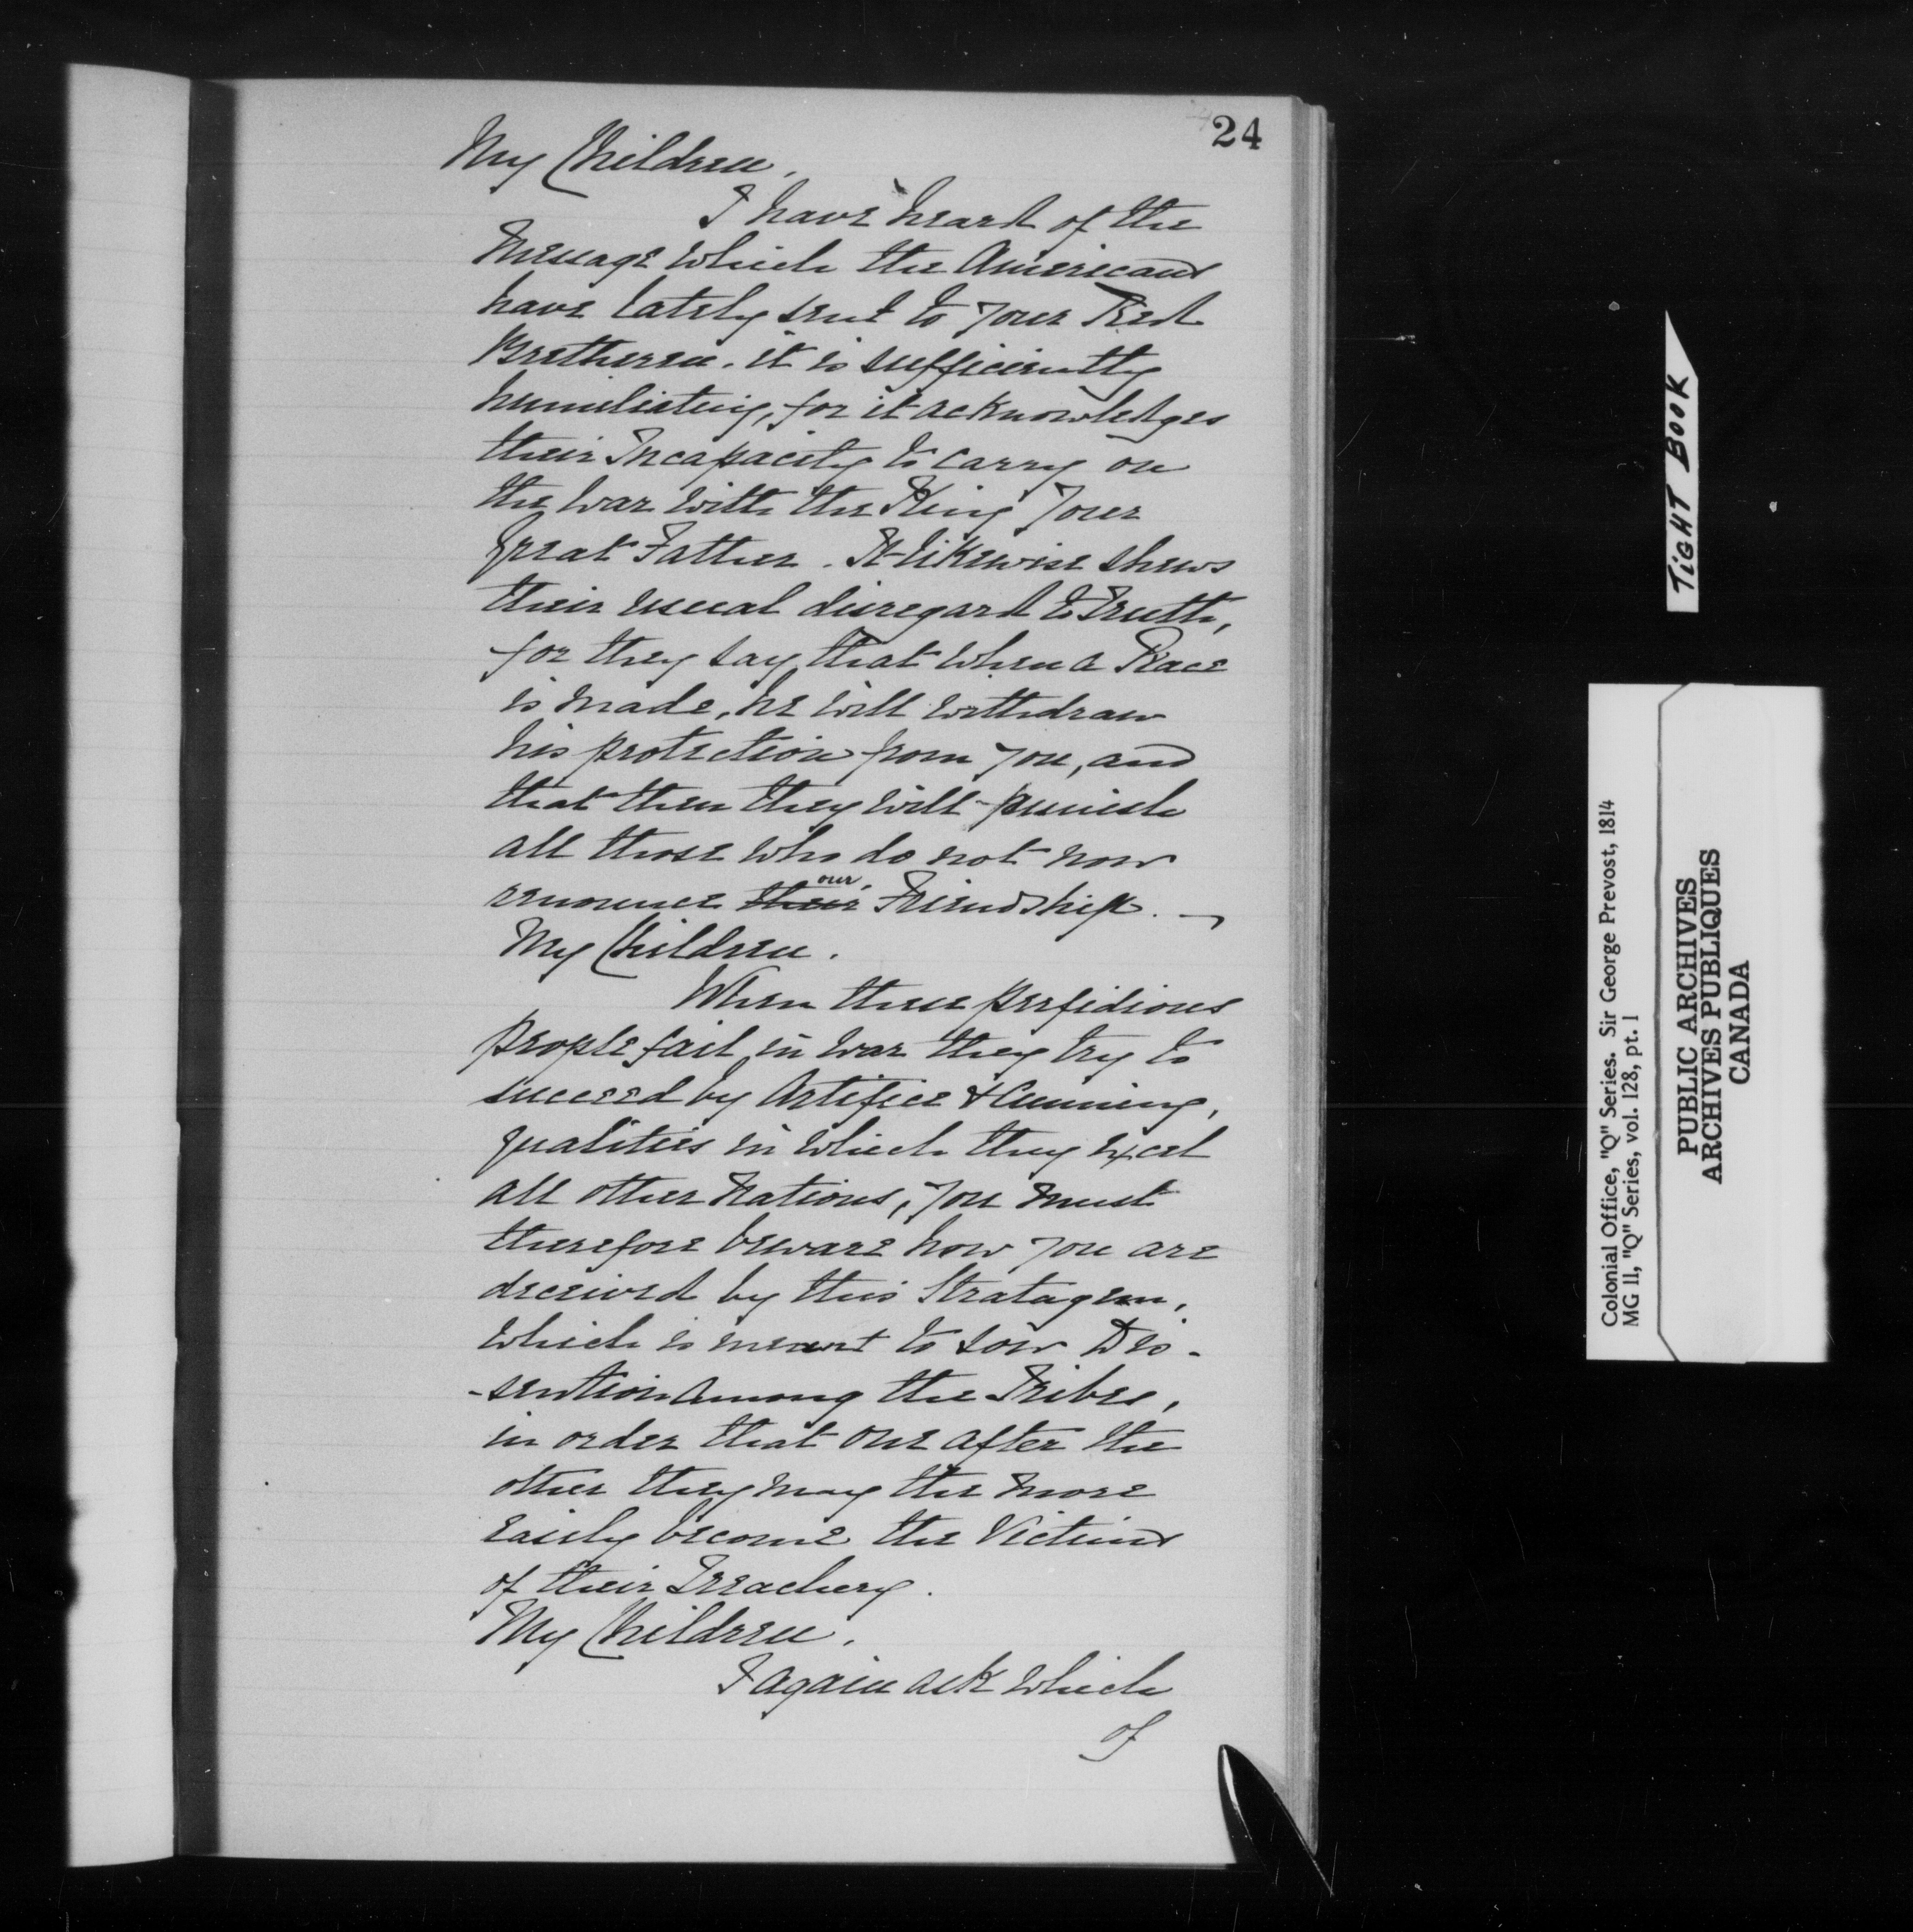 24
My Children,
I have heard of the
Message which the Americans
have lately sent to your Red
Bretheren. it is sufficiently
humiliating, for it acknowledges
their Incapacity to carry on
the war with the King Your
Great Father. It likewise shews
their usual disregard to Truth,
for they say, that when a Peace
is made, he will withdraw
his protection from you, and
that then they will punish
all those who do not now
renounce ~~their~~ our Friendship. —
My Children.
When these perfidious
people fail in war they try to
succeed by Artifice & Cunning,
qualities in which they excel
all other Nations, you must
therefore beware how you are
deceived by this Stratagem,
which is meant to sow Dis-
-sention among the Tribes,
in order that one after the
other they may the more
easily become the Victims
of their Treachery.
My Children.
I again ask which
of
TIGHT BOOK
Colonial Office, "Q" Series. Sir George Prevost, 1814
MG 11, "Q" Series, vol. 128, pt. 1
PUBLIC ARCHIVES
ARCHIVES PUBLIQUES
CANADA